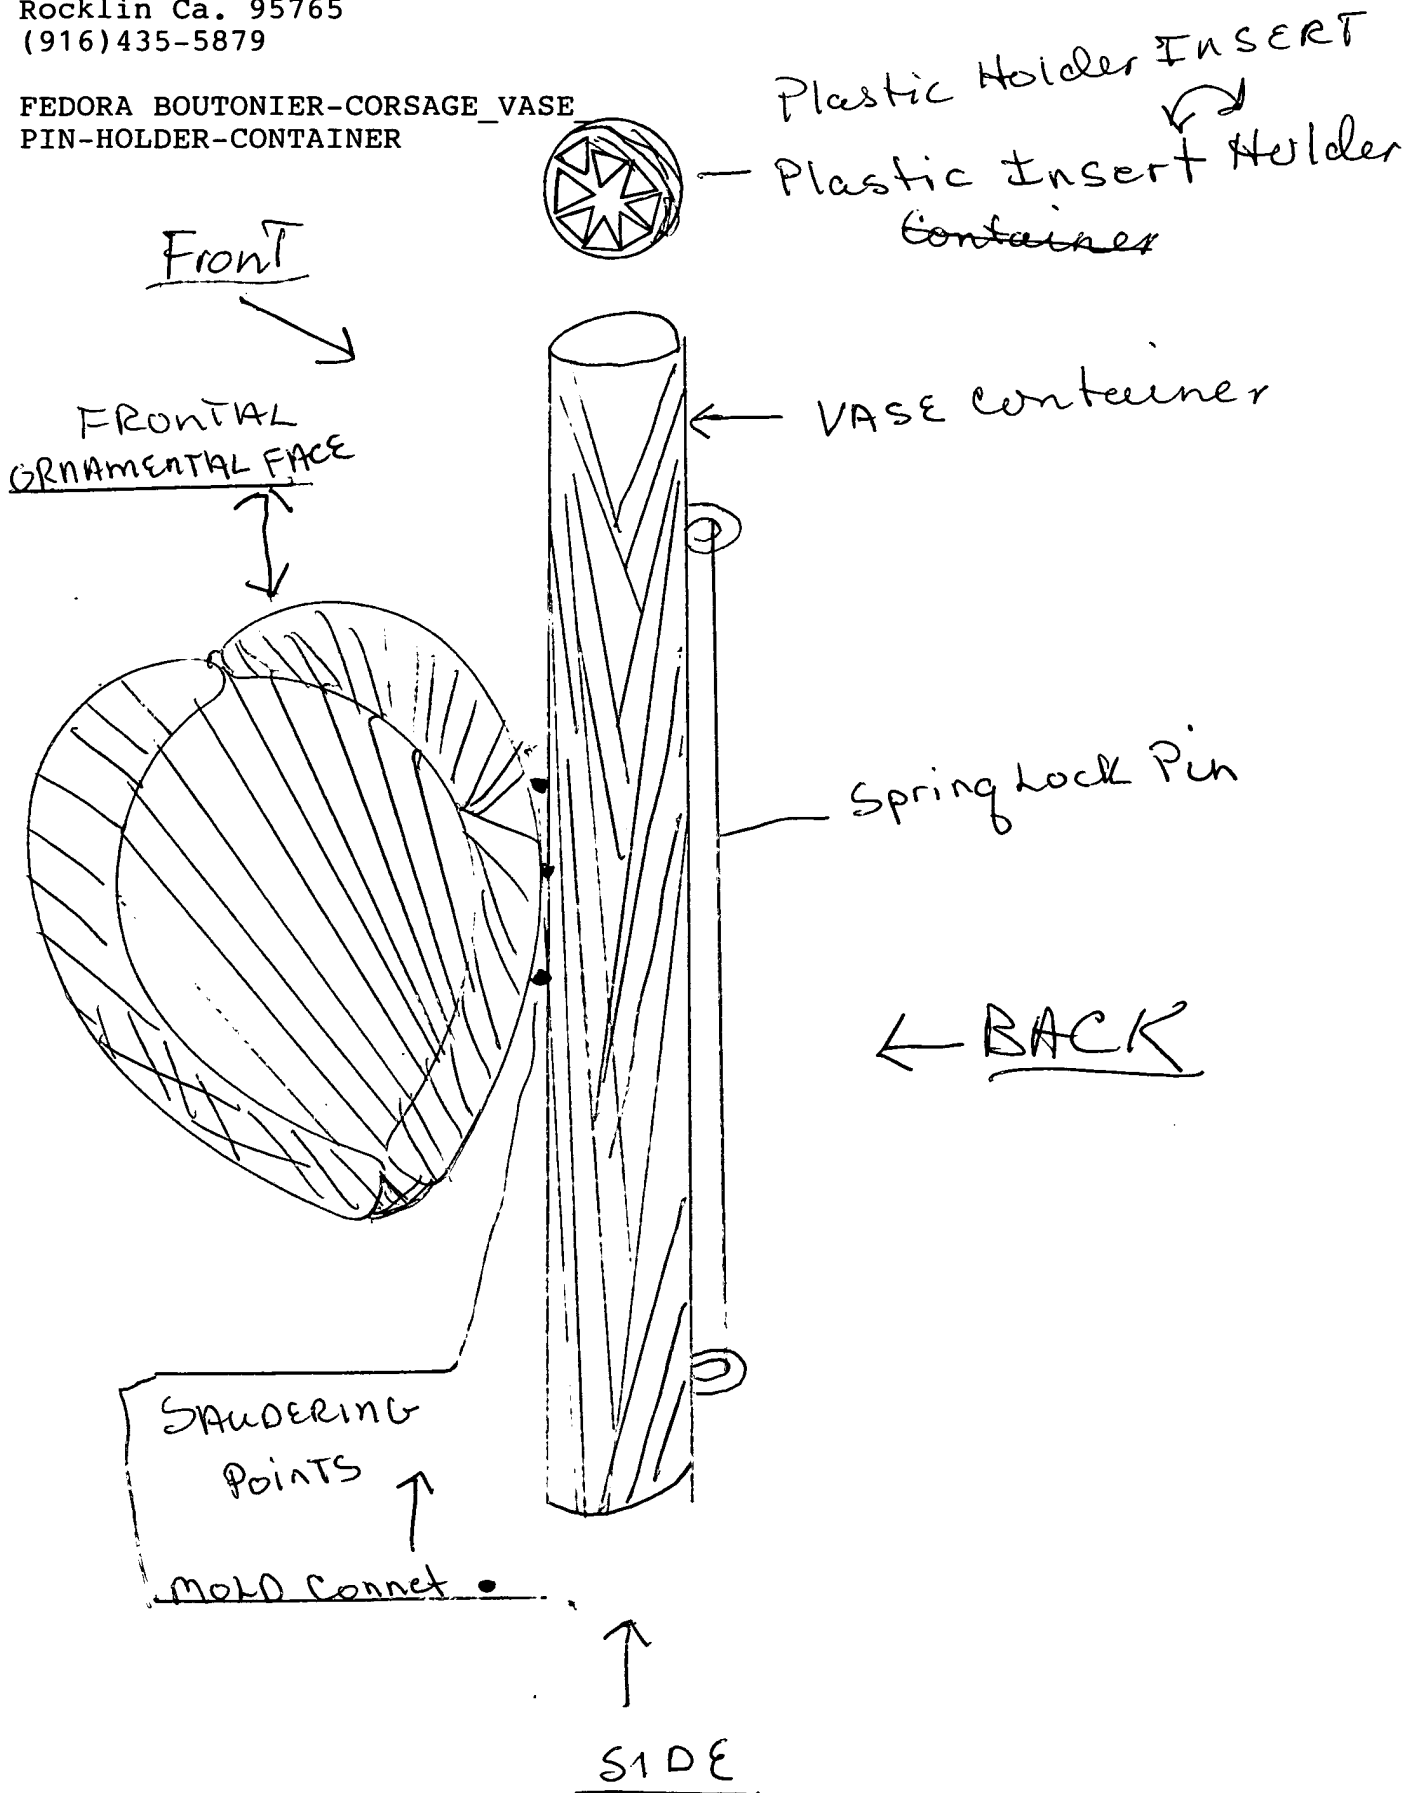 Rocklin Ca. 95765
(916)435-5879
FEDORA BOUTONIER-CORSAGE_VASE_
PIN-HOLDER-CONTAINER
Plastic Holder INSERT
Plastic Insert Holder
Container
Front
FRONTAL
ORNAMENTAL FACE
VASE Container
Spring Lock Pin
BACK
SAUDERING
POINTS
MOLD Connet
SIDE